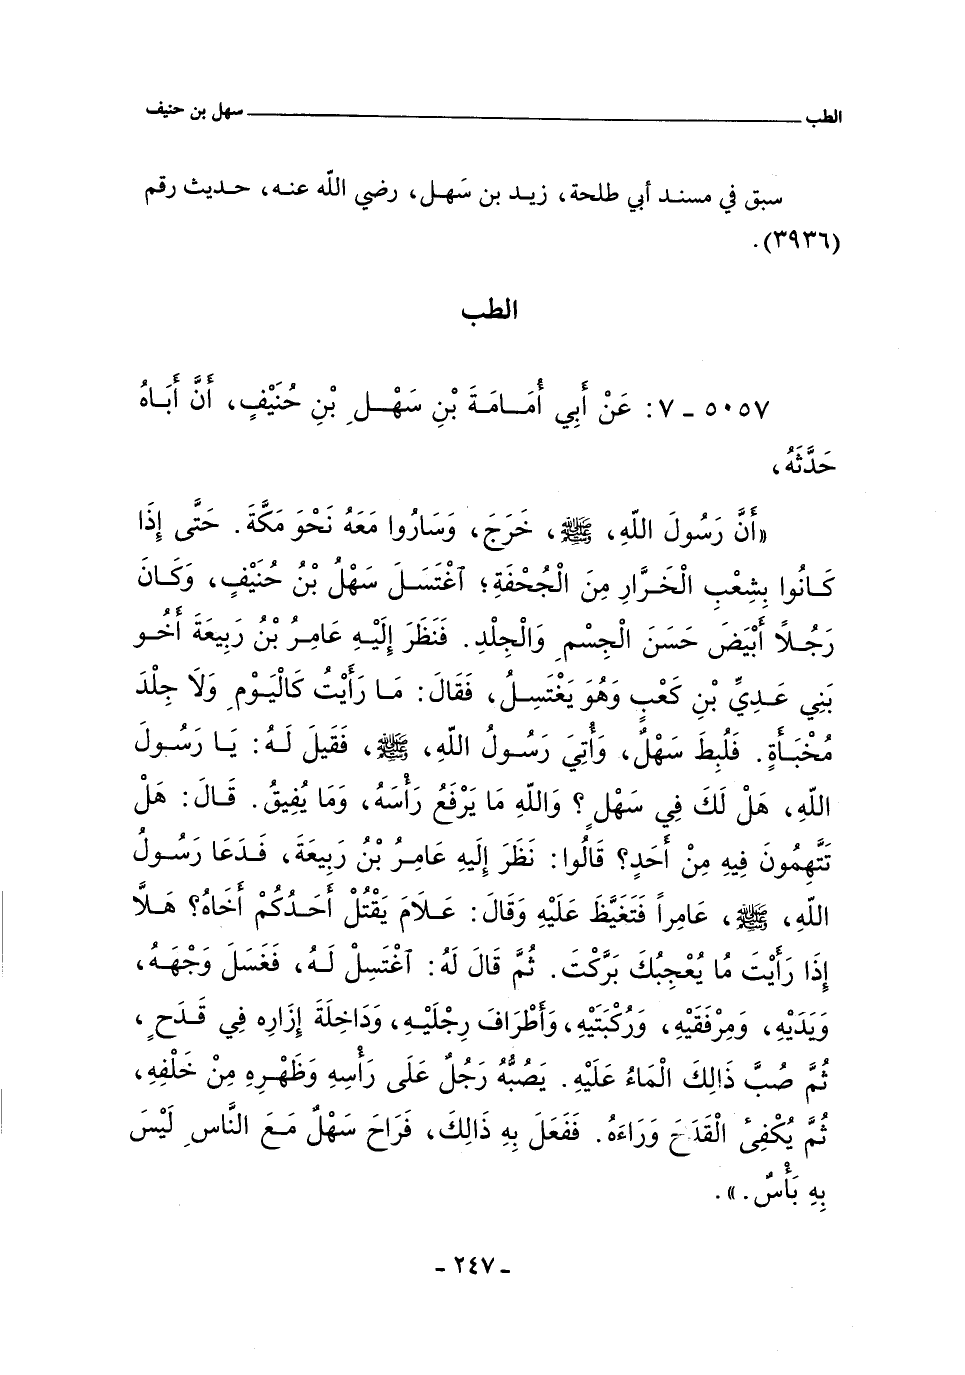 الطب ــــــــــــــــــــ سهل بن حنيف
سبق في مسند أبي طلحة، زيد بن سَهل، رضي اللّه عنه، حديث رقم
(٣٩٣٦).
الطب
٥٠٥٧ - ٧: عَنْ أَبِي أُمَامَةَ بْنِ سَهْلِ بْنِ حُنَيْفٍ، أَنَّ أَبَاهُ
حَدَّثَهُ،
«أَنَّ رَسُولَ اللّهِ، ﷺ، خَرَجَ، وَسَارُوا مَعَهُ نَحْوَ مَكَّةَ. حَتَّى إِذَا
كَانُوا بِشِعْبِ الْخَرَّارِ مِنَ الْجُحْفَةِ؛ آغْتَسَلَ سَهْلُ بْنُ حُنَيْفٍ، وَكَانَ
رَجُلاً أَبْيَضَ حَسَنَ الْجِسْمِ وَالْجِلْدِ. فَنَظَرَ إِلَيْهِ عَامِرُ بْنُ رَبِيعَةَ أَخُو
بَنِي عَدِيِّ بْنِ كَعْبٍ وَهُوَ يَغْتَسِلُ، فَقَالَ: مَا رَأَيْتُ كَالْيَوْمِ وَلَا جِلْدَ
مُخْبَأَةٍ. فَلُبِطَ سَهْلٌ، وَأُتِيَ رَسُولُ اللّهِ، ﷺ، فَقِيلَ لَهُ: يَا رَسُولَ
اللّهِ، هَلْ لَكَ فِي سَهْلٍ؟ وَاللّهِ مَا يَرْفَعُ رَأْسَهُ، وَمَا يُفِيقُ. قَالَ: هَلْ
تَتَّهِمُونَ فِيهِ مِنْ أَحَدٍ؟ قَالُوا: نَظَرَ إِلَيهِ عَامِرُ بْنُ رَبِيعَةَ، فَدَعَا رَسُولُ
اللّهِ، ﷺ، عَامِراً فَتَغَيَّظَ عَلَيْهِ وَقَالَ: عَلَامَ يَقْتُلُ أَحَدُكُمْ أَخَاهُ؟ هَلَّا
إِذَا رَأَيْتَ مُا يُعْجِبُكَ بَرَّكْتَ. ثُمَّ قَالَ لَهُ: آغْتَسِلْ لَهُ، فَغَسَلَ وَجْهَهُ،
وَيَدَيْهِ، وَمِرْفَقَيْهِ، وَرُكْبَتَيْهِ، وَأَطْرَافَ رِجْلَيْهِ، وَدَاخِلَةَ إِزَارِهِ فِي قَدَحٍ،
ثُمَّ صُبَّ ذَالِكَ الْمَاءُ عَلَيْهِ. يَصُبُّهُ رَجُلٌ عَلَى رَأْسِهِ وَظَهْرِهِ مِنْ خَلْفِهِ،
ثُمَّ يُكْفِئُ الْقَدَحَ وَرَاءَهُ. فَفَعَلَ بِهِ ذَالِكَ، فَرَاحَ سَهْلٌ مَعَ النَّاسِ لَيْسَ
بِهِ بَأْسٌ.».
- ٢٤٧ -